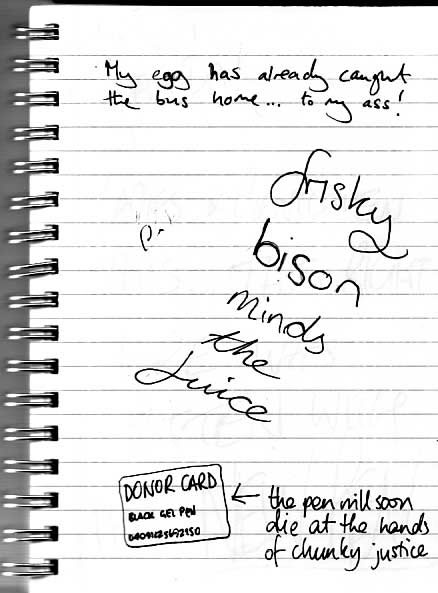 My egg has already caught
the bus home... to my ass!
frisky
bison
minds
the
juice
DONOR CARD
BLACK GEL PEN
← the pen will soon
die at the hands
of chunky justice